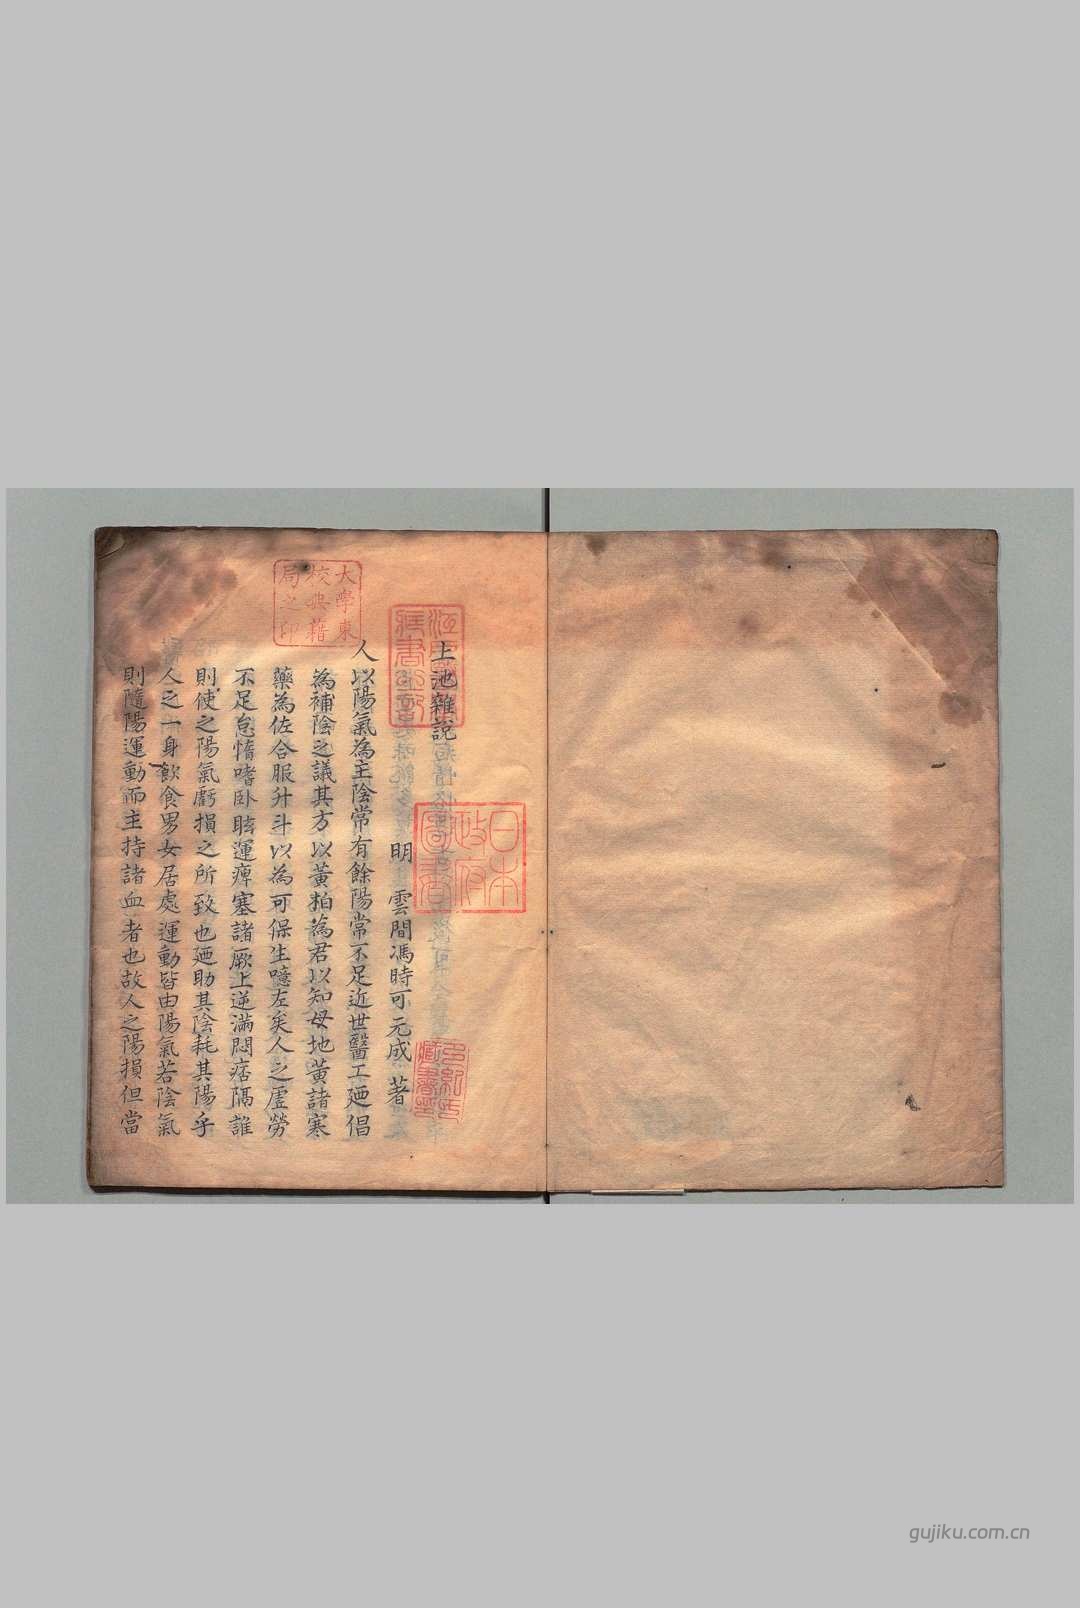 上池雜說
明　雲間馮時可元成　著
人以陽氣為主陰常有餘陽常不足近世醫工廼倡
為補陰之議其方以黃柏為君以知母地黃諸寒
藥為佐合服升斗以為可保生噫左矣人之虛勞
不足怠惰嗜卧眩運痺塞諸厥上逆滿悶痞隔誰
則使之陽氣虧損之所致也廼助其陰耗其陽乎
人之一身飲食男女居處運動皆由陽氣若陰氣
則隨陽運動而主持諸血者也故人之陽損但當
大學東
校典籍
局之印
日本
政府
圖書
gujiku.com.cn